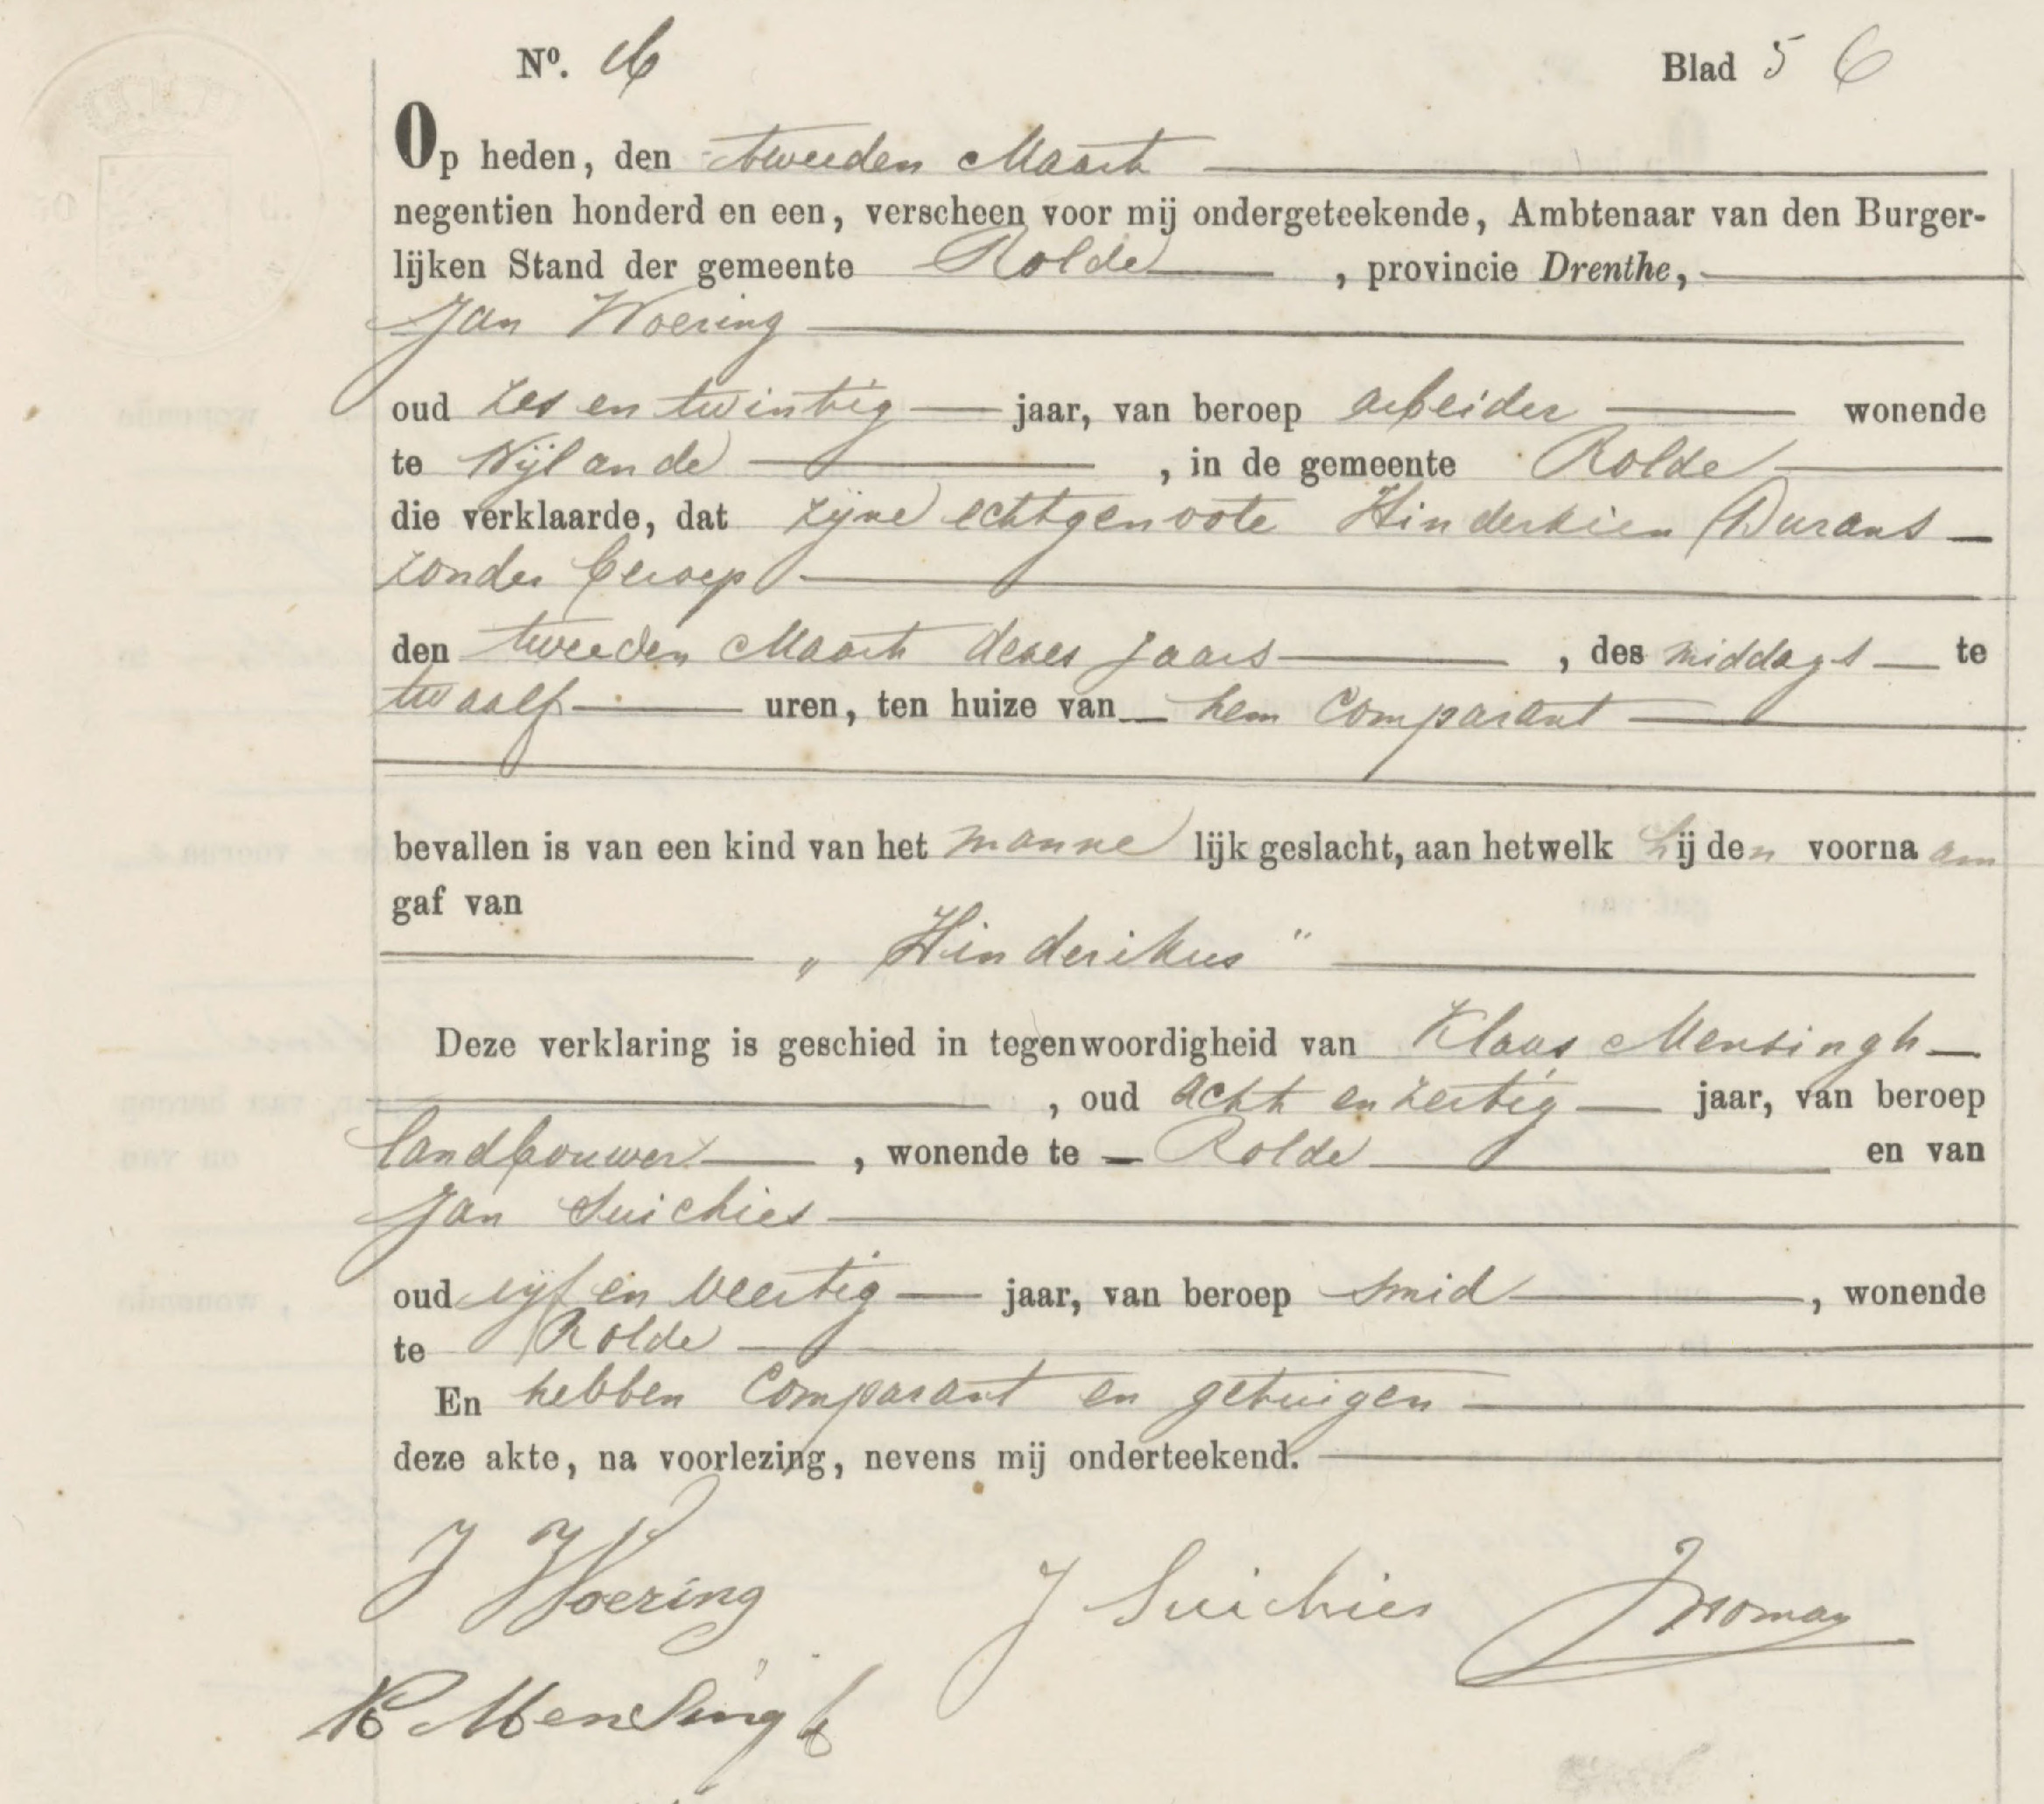 Nº. 16 Blad 5 6
Op heden, den tweeden Maart
negentien honderd en een, verscheen voor mij ondergeteekende, Ambtenaar van den Burger-
lijken Stand der gemeente Rolde, provincie Drenthe,
Jan Woering
oud zes en twintig jaar, van beroep arbeider wonende
te Nijlande, in de gemeente Rolde
die verklaarde, dat zijne echtgenoote Hinderkien Durans
zonder beroep
den tweeden Maart dezes jaars, des middags te
twaalf uren, ten huize van hem Comparant
bevallen is van een kind van het mannelijk geslacht, aan hetwelk hij den voornaam
gaf van
„ Hinderikus "
Deze verklaring is geschied in tegenwoordigheid van Klaas Mensingh
, oud acht en zestig jaar, van beroep
landbouwer, wonende te Rolde en van
Jan Suichies
oud vijf en veertig jaar, van beroep smid, wonende
te Rolde
En hebben Comparant en getuigen
deze akte, na voorlezing, nevens mij onderteekend.
J Woering J Suichies
K Mensingh